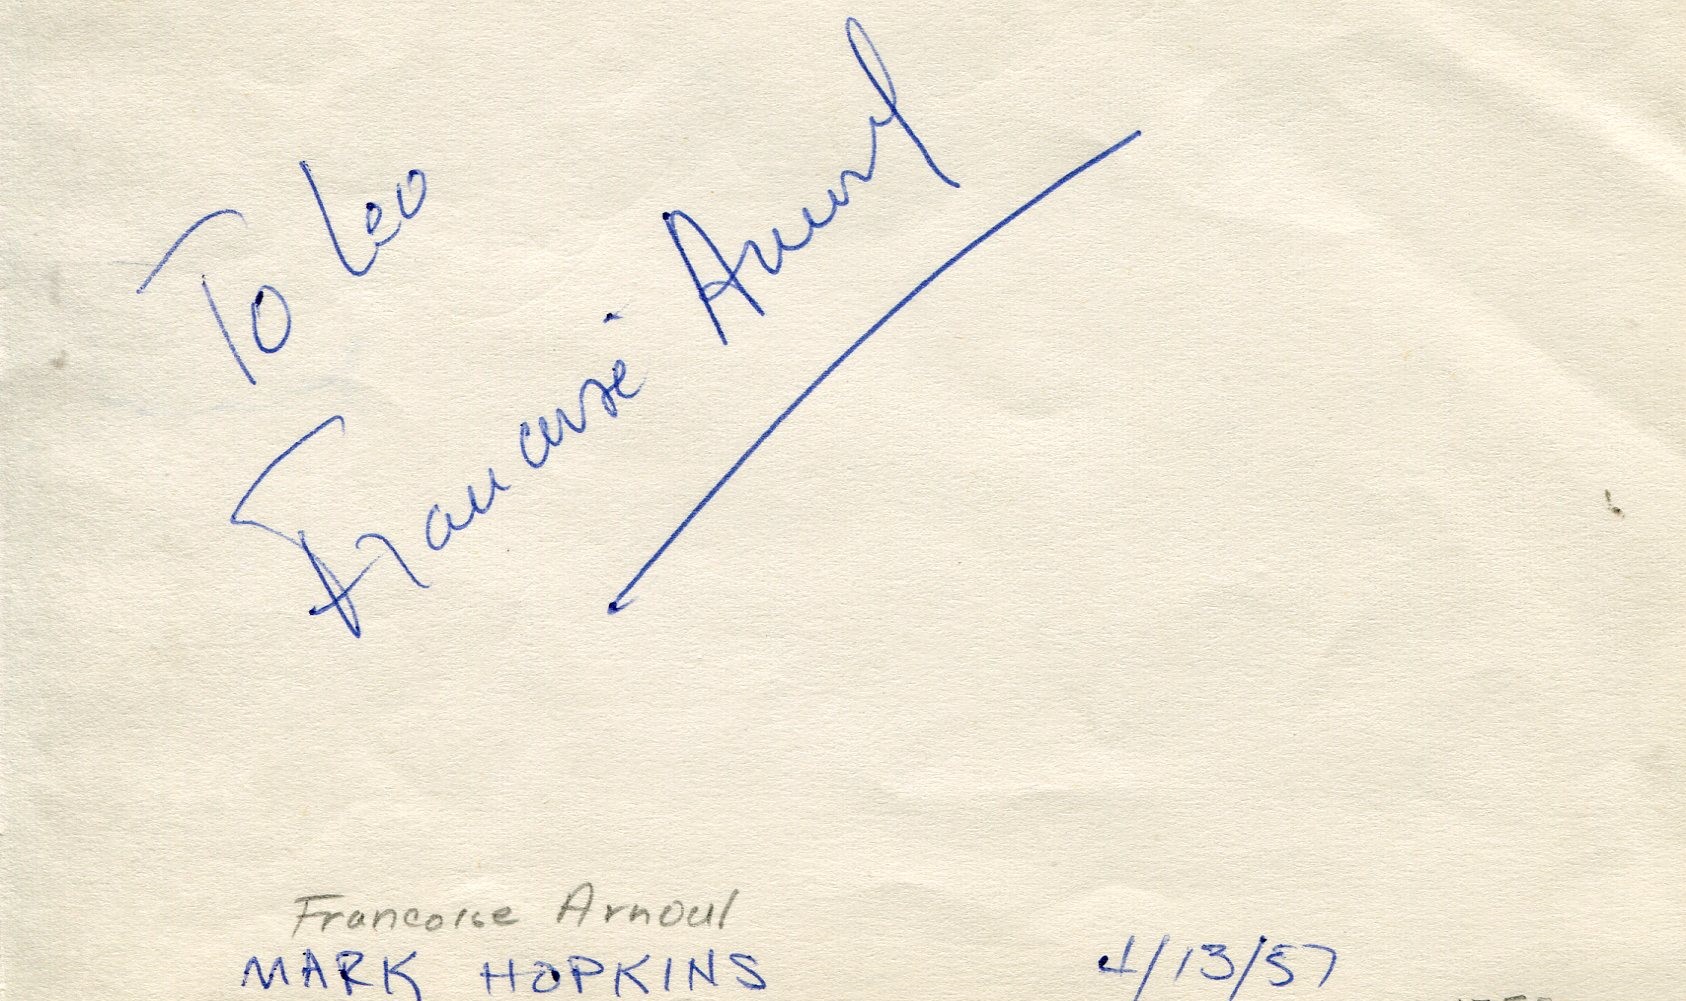 To Leo
Francoise Arnoul
Francoise Arnoul
MARK HOPKINS 4/13/57